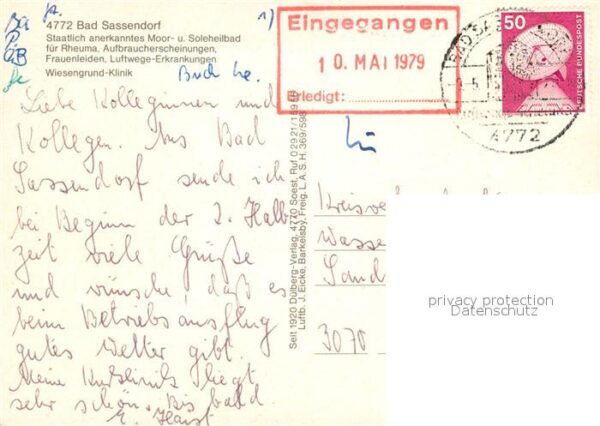 4772 Bad Sassendorf
Staatlich anerkanntes Moor- u. Soleheilbad
für Rheuma, Aufbraucherscheinungen,
Frauenleiden, Luftwege-Erkrankungen
Wiesengrund-Klinik
1)
Eingegangen
10. MAI 1979
Erledigt:
50
DEUTSCHE BUNDESPOST
4772
Liebe Kolleginnen und
Kollegen. Aus Bad
Sassendorf sende ich
bei Beginn der 2. Halb
zeit viele Grüße
und wünsche, daß es
beim Betriebsausflug
gutes Wetter gibt.
Meine Kurklinik liegt
sehr schön. Bis bald
Seit 1920 Dülberg-Verlag, 4770 Soest, Ruf 02921/15958
Luftb. J. Eicke, Barkelsby, Freig. L.A.S.H. 369/598
3070
privacy protection
Datenschutz